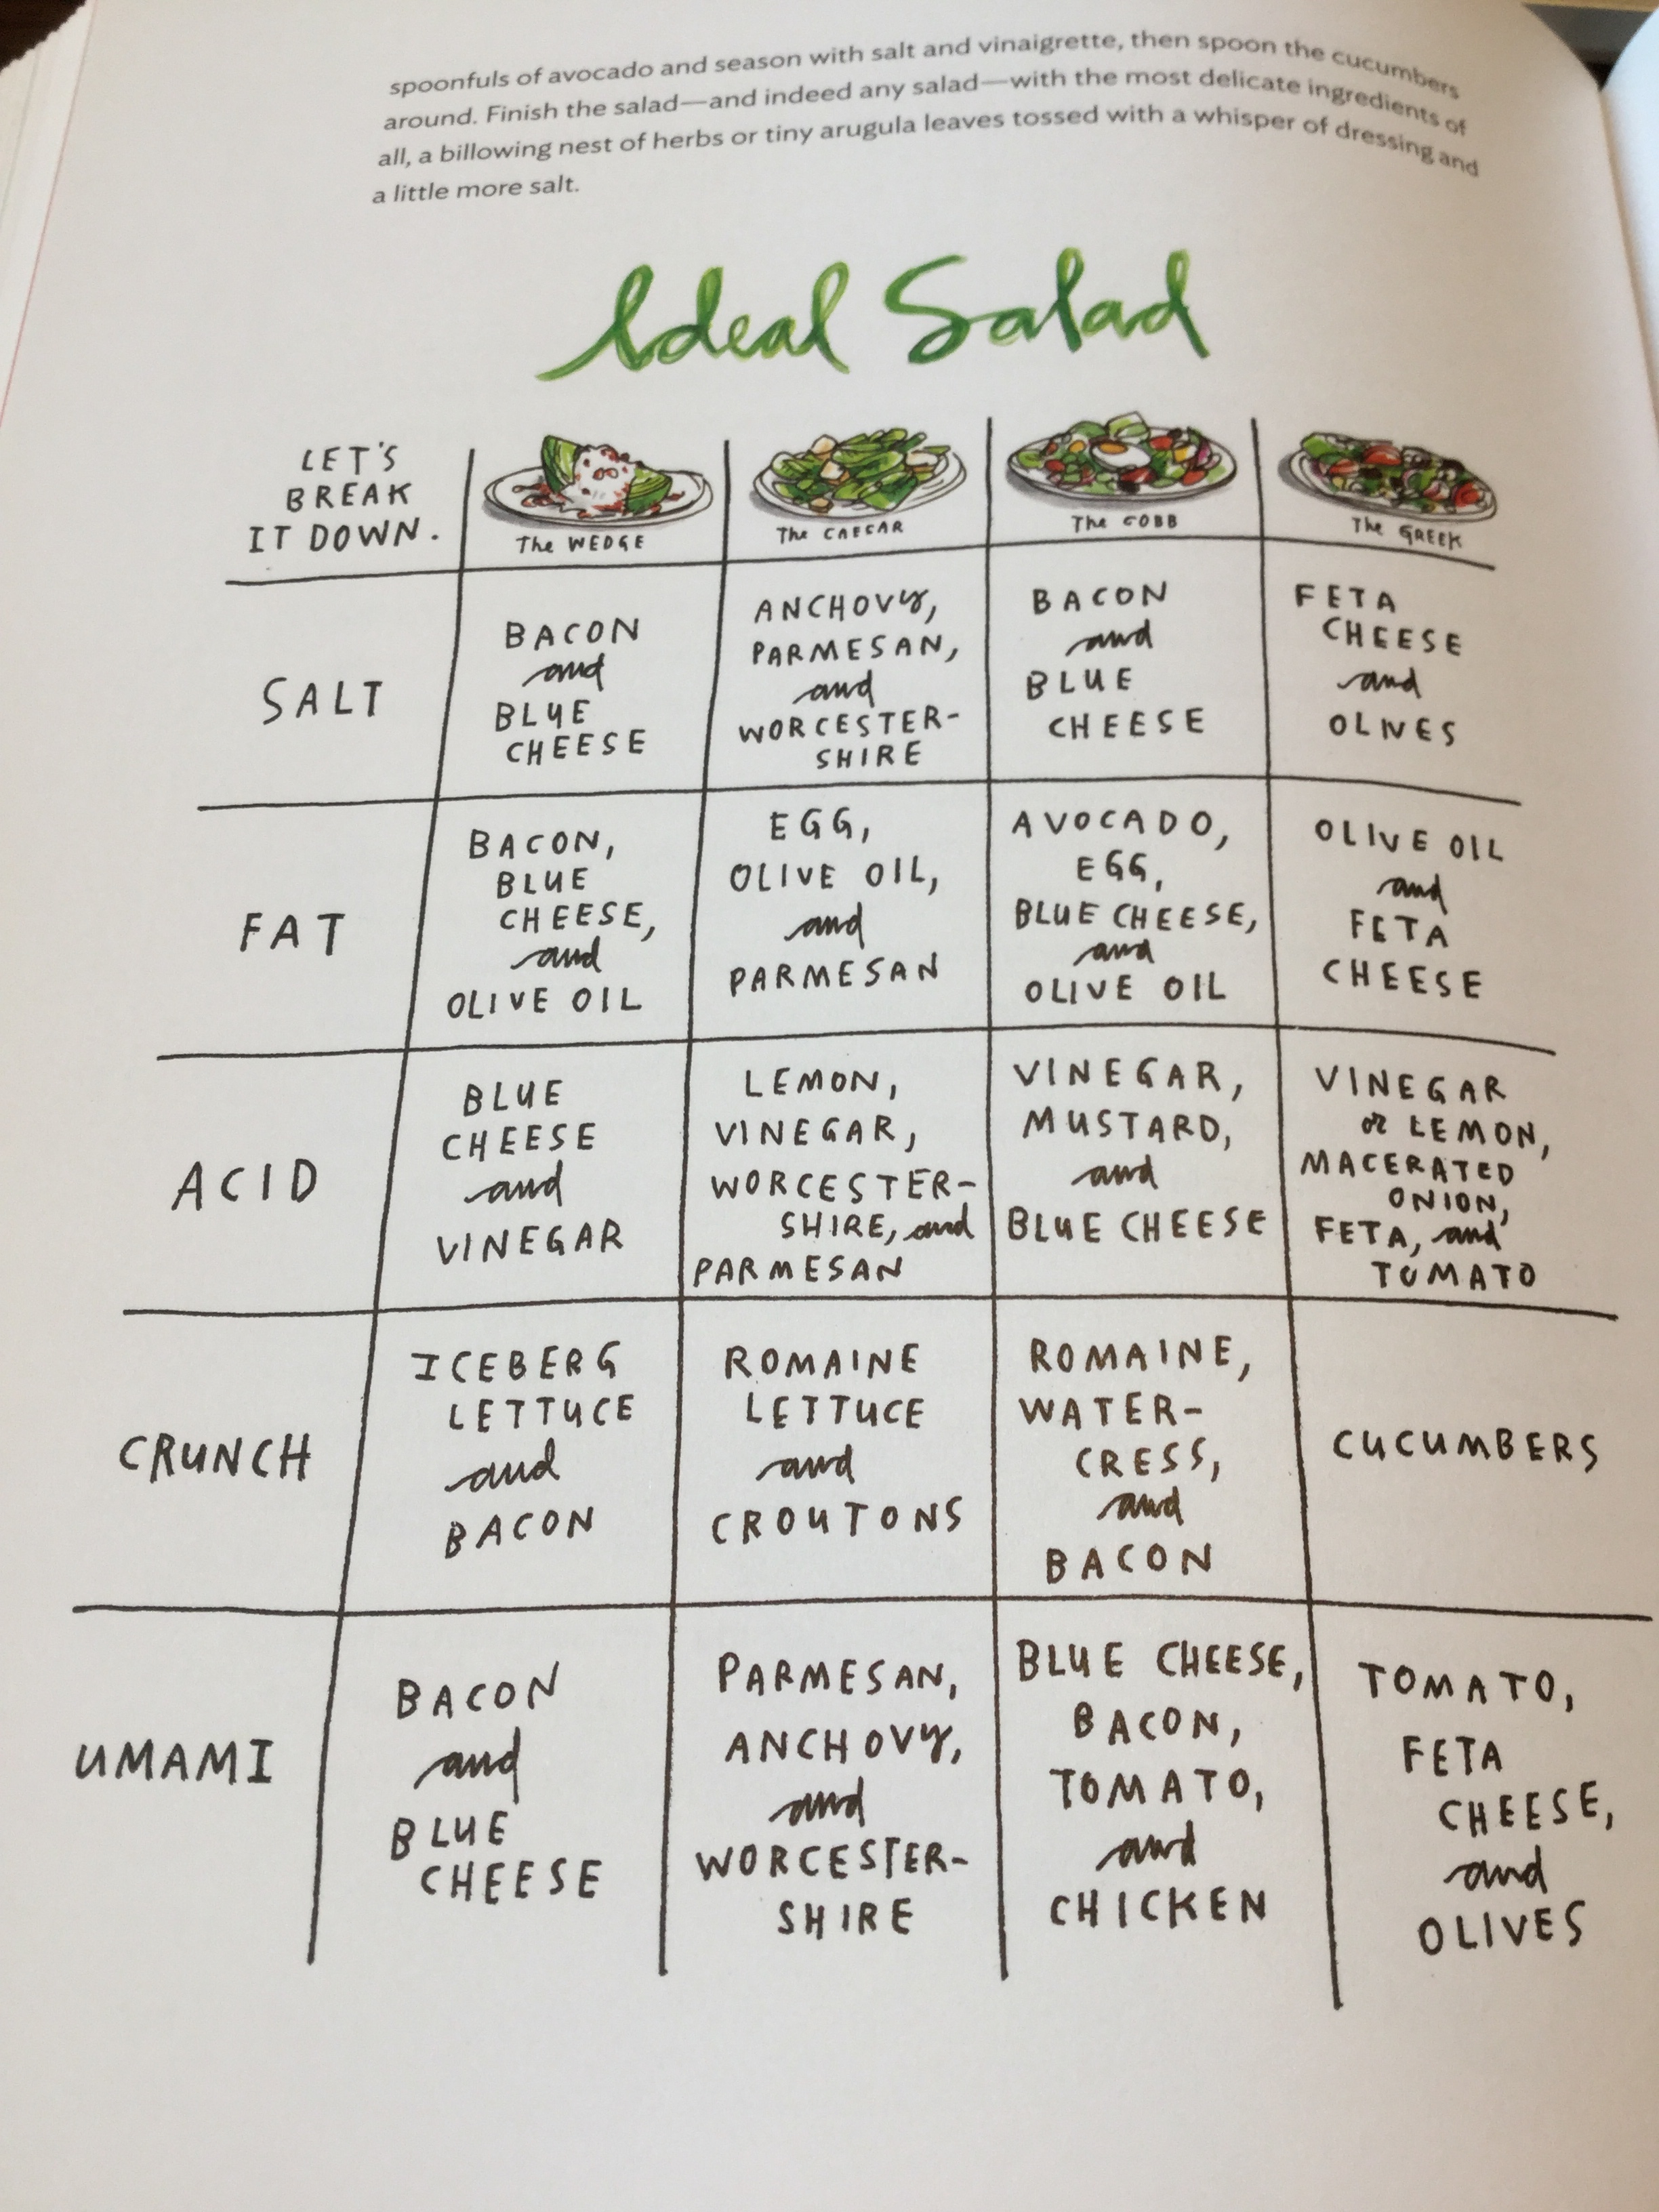 spoonfuls of avocado and season with salt and vinaigrette, then spoon the cucumbers
around. Finish the salad—and indeed any salad—with the most delicate ingredients of
all, a billowing nest of herbs or tiny arugula leaves tossed with a whisper of dressing and
a little more salt.
Ideal Salad
LET'S
BREAK
IT DOWN.
The WEDGE
The CAESAR
The COBB
The GREEK
SALT
BACON
and
BLUE
CHEESE
ANCHOVY,
PARMESAN,
and
WORCESTER-
SHIRE
BACON
and
BLUE
CHEESE
FETA
CHEESE
and
OLIVES
FAT
BACON,
BLUE
CHEESE,
and
OLIVE OIL
EGG,
OLIVE OIL,
and
PARMESAN
AVOCADO,
EGG,
BLUE CHEESE,
and
OLIVE OIL
OLIVE OIL
and
FETA
CHEESE
ACID
BLUE
CHEESE
and
VINEGAR
LEMON,
VINEGAR,
WORCESTER-
SHIRE, and
PARMESAN
VINEGAR,
MUSTARD,
and
BLUE CHEESE
VINEGAR
or LEMON,
MACERATED
ONION,
FETA, and
TOMATO
CRUNCH
ICEBERG
LETTUCE
and
BACON
ROMAINE
LETTUCE
and
CROUTONS
ROMAINE,
WATER-
CRESS,
and
BACON
CUCUMBERS
UMAMI
BACON
and
BLUE
CHEESE
PARMESAN,
ANCHOVY,
and
WORCESTER-
SHIRE
BLUE CHEESE,
BACON,
TOMATO,
and
CHICKEN
TOMATO,
FETA
CHEESE,
and
OLIVES